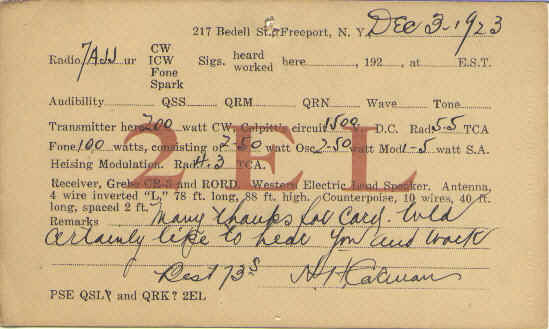 217 Bedell St., Freeport, N. Y. Dec 3 1923
Radio 7AJJ ur CW ICW Fone Spark Sigs. heard worked here ........, 192...., at ........ E.S.T.
Audibility QSS QRM QRN Wave Tone
Transmitter here 200 watt CW, Colpitt's circuit 1500 V. D.C. Rad. 5.5 TCA
Fone 100 watts, consisting of 2-50 watt Osc. 2-50 watt Mod. 1-5 watt S.A.
Heising Modulation. Rad. 4.3 TCA.
2EL
Receiver, Grebe CR-3 and RORD. Western Electric Loud Speaker. Antenna,
4 wire inverted "L," 78 ft. long, 88 ft. high. Counterpoise, 10 wires, 40 ft.
long, spaced 2 ft.
Remarks Many thanks for card. Wld
certainly like to hear you and work
Best 73s
PSE QSL and QRK? 2EL